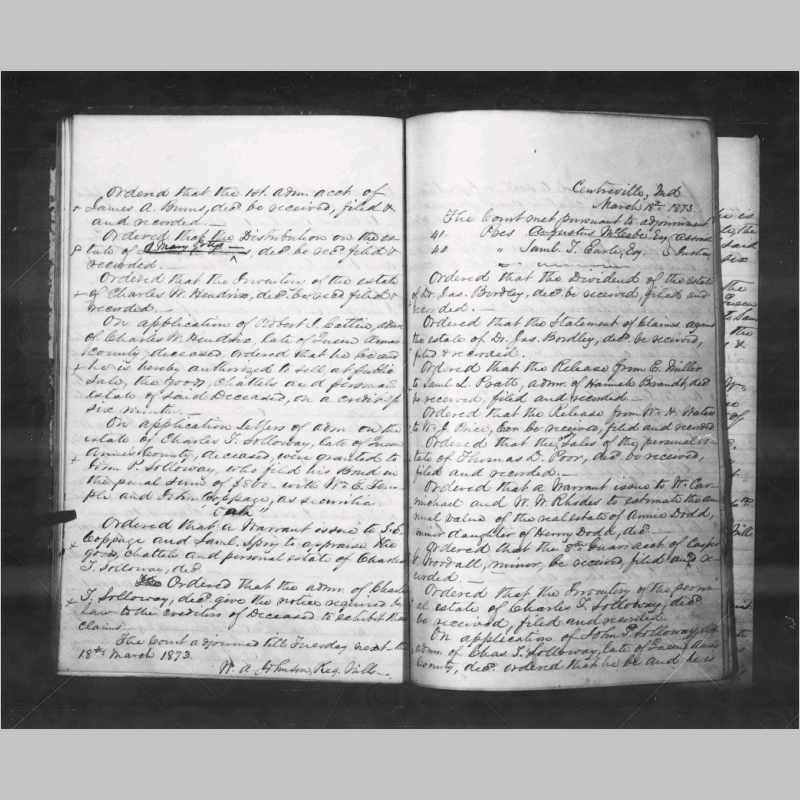 Ordered that the 1st. admn acct. of
James A. Burns, decd be received, filed &
and recorded.—
Ordered that the Distribution on the es-
tate of , decd be recd filed &
recorded.—
Ordered that the Inventory of the estate
of Charles W. Hendrix, decd be recd filed &
recorded.—
On application of Robert J. , admr
of Charles W. Hendrix, late of Queen Annes
County, deceased ordered that he be and
he is hereby authorized to sell at Public
Sale, the goods, Chattels and personal
estate of said Deceased, on a credit of
six months.—
On application Letters of adm on the
estate of Charles T. Solloway, late of Queen
Annes County, deceased, were granted to
John P. Solloway, who filed his Bond in
the penal sum of $800— with Wm E. Tem-
ple and John Coppage, as securities.
Ordered that a Warrant issue to
Coppage and Saml. Spry to appraise the
goods, Chattels and personal estate of Charles
T. Solloway, decd
Ordered that the admr. of Charles
T. Solloway, decd give the notice required by
Law to the creditors of Deceased to exhibit their
claims.
The Court adjourned till Tuesday next the
18th March 1873.
W. A. Johnson, Reg. Wills.
Centreville, Md
March 18th 1873.
The Court met, pursuant to adjournment
41. Pres Augustus McCabe Esq
40 " Saml. T. Earle, Esq.
Ordered that the Dividend of the estate
of Dr. Jas. Bordley, decd. be received, filed and
recorded.—
Ordered that the Statement of Claims against
the estate of Dr. Jas. Bordley, decd. be received,
filed & recorded.—
Ordered that the Release from E. Miller
to Saml L. Pratt, admr. of Brandt, decd
be received, filed and recorded.—
Ordered that the Release from W. H. Waters
to W. J. Price, Exr be received, filed and recorded
Ordered that the Sales of the personal es-
tate of Thomas D. Poor, decd. be received,
filed and recorded.—
Ordered that a Warrant issue to Wm Car-
michael and W. W. Rhodes to estimate the an-
nual value of the real estate of Annie Dodd,
minor daughter of Henry Dodd, decd.—
Ordered that the 8th Guars acct of Casper
Woodall, minor, be received, filed and re-
corded.—
Ordered that the Inventory of the person-
al estate of Charles T. Solloway, decd
be received, filed and recorded.
On application of John P. Solloway
admr. of Chas T. Solloway, late of Queen Annes
County, decd. ordered that he be and he is